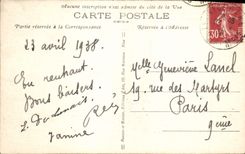 Aucune inscription n'est admise du côté de la Vue
CARTE POSTALE
Partie réservée à la Correspondance
Réservée à l'Adresse
30
23 avril 1938.
En rentrant.
Bons baisers.
Janine
Melle Geneviève Lanel
19. rue des Martyrs
Paris
9ème